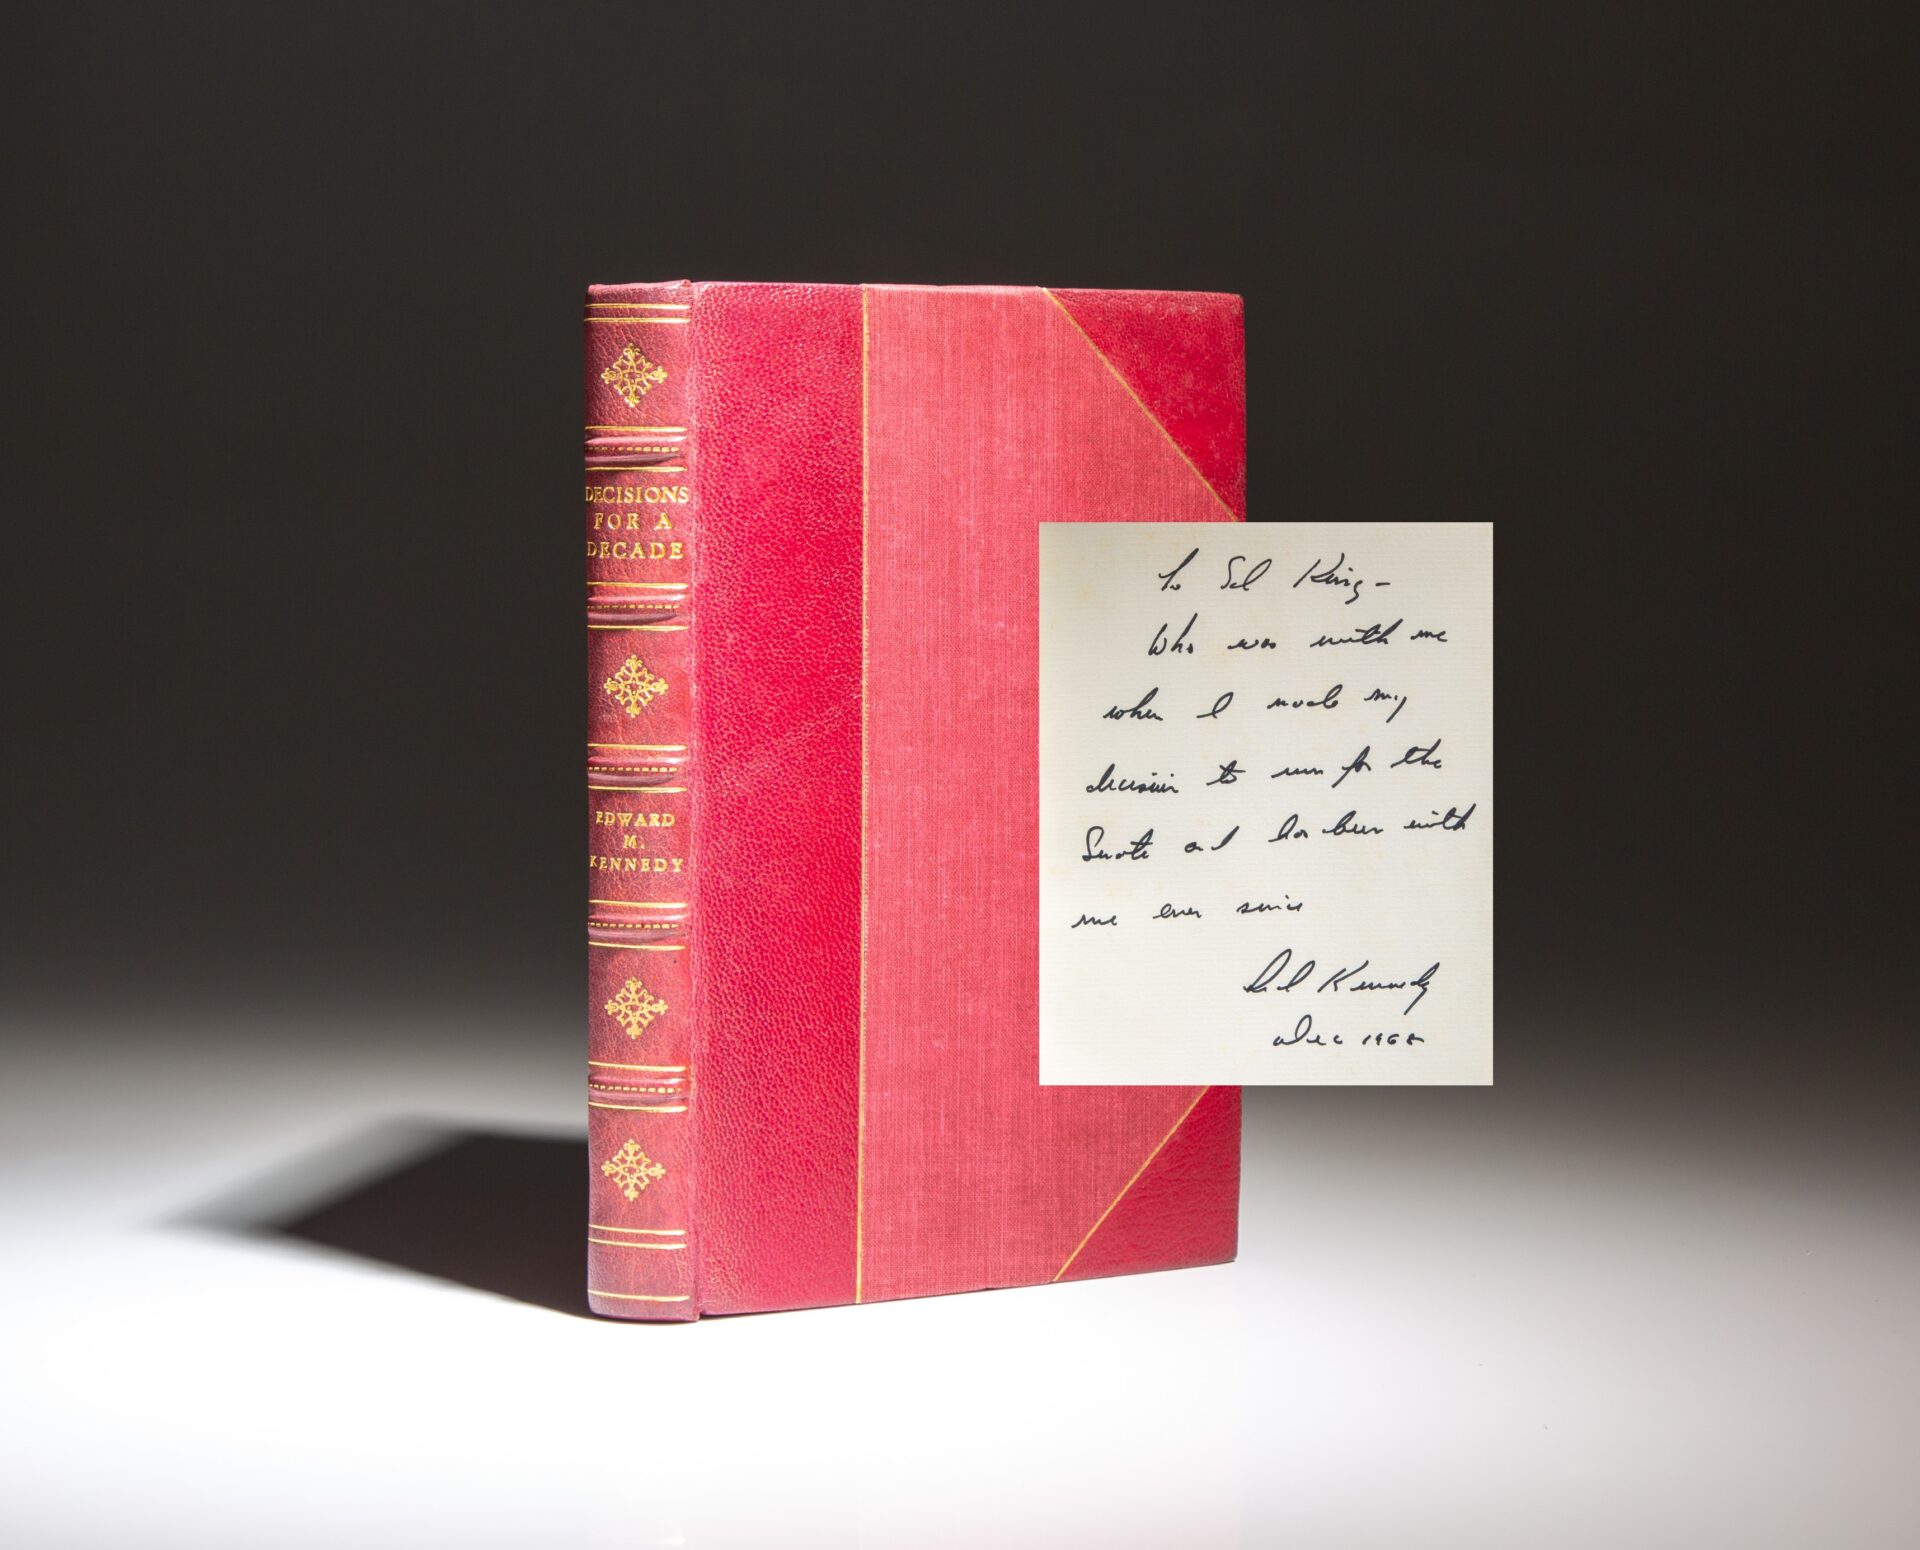 DECISIONS
FOR A
DECADE
EDWARD
M.
KENNEDY
To Sal King –
Who was with me
when I made my
decision to run for the
Senate and has been with
me ever since
Ted Kennedy
Dec 1968